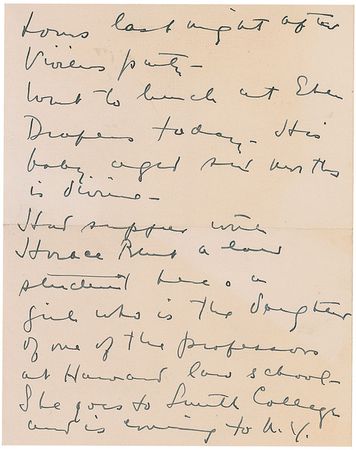 last night after
party –
Went to lunch at Eben
Drapers today – His
baby aged six months
is divine –
Had supper with
Horace a law
student here & a
girl who is the daughter
of one of the professors
at Harvard law school –
She goes to Smith College
and is coming to N.Y.